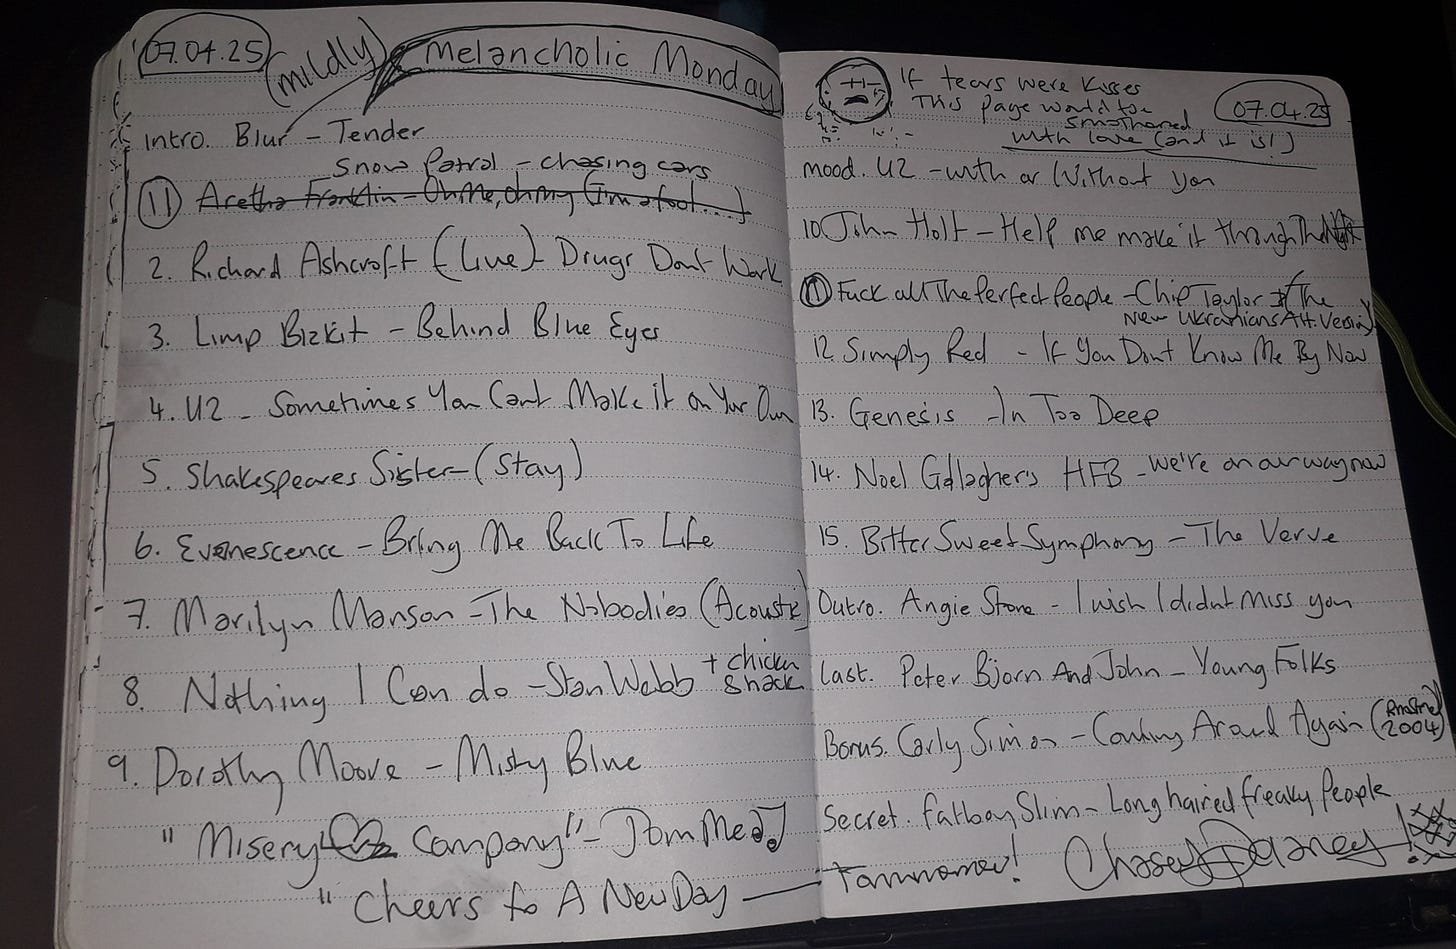 07.04.25 (mildly) Melancholic Monday
Intro. Blur - Tender
Snow Patrol - chasing cars
11 Aretha Franklin - Oh Me, oh my (I'm a fool....)
2. Richard Ashcroft (Live) - Drugs Dont Work
3. Limp Bizkit - Behind Blue Eyes
4. U2 - Sometimes You Cant Make it on Your Own
5. Shakespeares Sister - (Stay)
6. Evanescence - Bring Me Back To Life
7. Marilyn Manson - The Nobodies (Acoustic)
8. Nothing I Can do - Stan Webb + chicken
Shack
9. Dorothy Moore - Misty Blue
"Misery Company" - Join Me
"Cheers to A New Day — Tomorrow!
If tears were Kisses
This page would be
smothered
with love (and it is!)
07.04.25
mood. U2 - with or Without you
10. John Holt - Help me make it through The
11 Fuck all The Perfect People - Chip Taylor & The
New Ukranians Alt. Version)
12. Simply Red - If You Dont Know Me By Now
13. Genesis - In Too Deep
14. Noel Gallaghers HFB - We're on our way now
15. Bitter Sweet Symphony - The Verve
Outro. Angie Stone - I wish I didnt miss you
Last. Peter Bjorn And John - Young Folks
Bonus. Carly Simon - Coming Around Again (
2004)
Secret. Fatboy Slim - Long haired freaky People